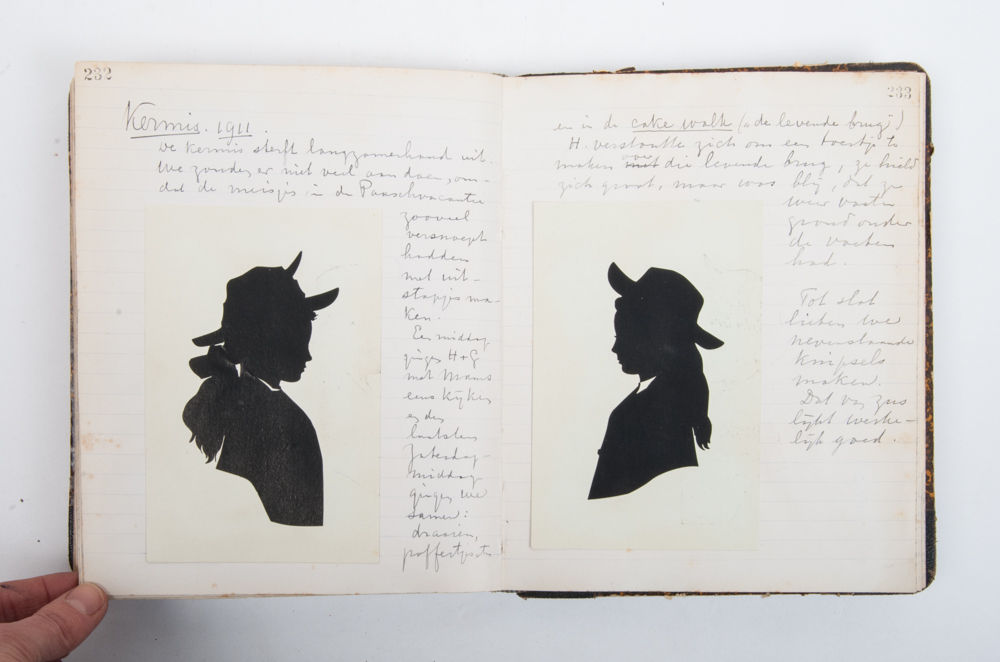 232
Kermis. 1911.
De kermis sterft langzamerhand uit.
We zouden er niet veel aan doen, om-
dat de meisjes in de Paaschvacantie
zooveel
versnoept
hadden
met uit-
stapjes ma-
ken.
Een middag
gingen H + G
met Mams
eens kijken
en den
laatsten
Zaterdag-
middag
gingen we
samen:
draaien,
poffertjes eten
233
en in de cake walk (= de levende brug!)
H. verstoutte zich om een toertje te
maken over die levende brug, ze hield
zich groot, maar was blij, dat ze
weer vasten
grond onder
de voeten
had.
Tot slot
lieten we
nevenstaande
knipsels
maken.
Dat van Zus
lijkt werke-
lijk goed.